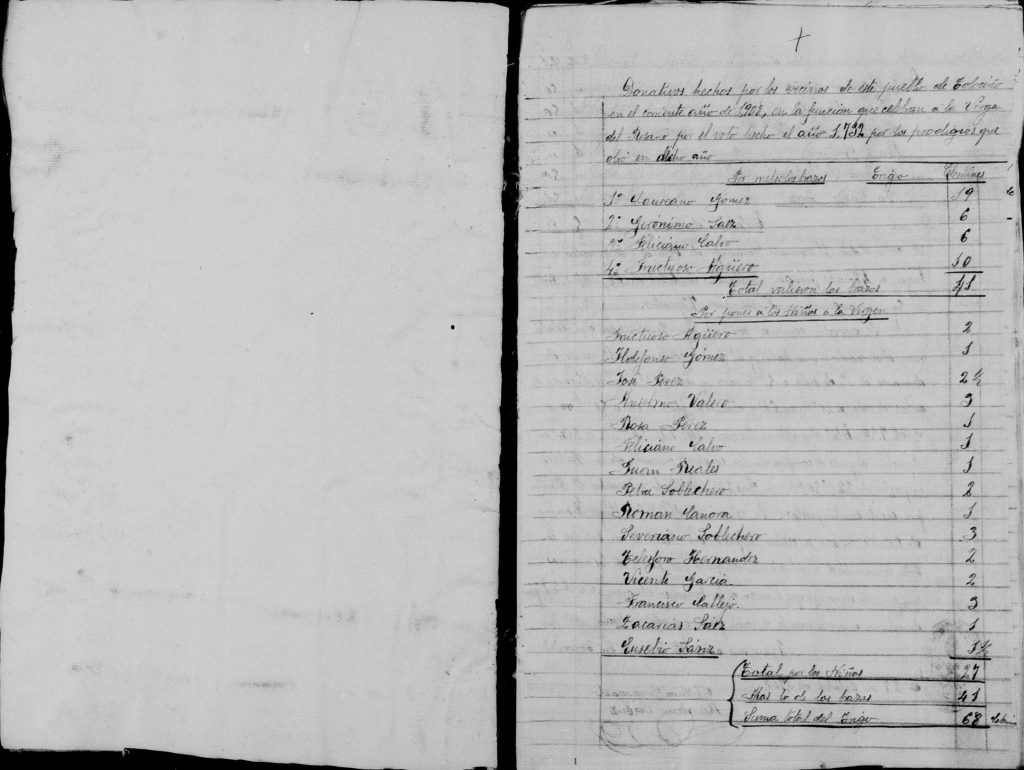 +
Donativos hechos por los vecinos de este pueblo de
en el corriente año de 1908, en la función que celebran a la Virgn
del Rosario por el voto hecho el año 1.732 por los prodigios que
obró en dicho año
Por meter los brazos Trigo Celemines
1º Laureano Gómez 19
2º Gerónimo Saez 6
3º Feliciano Calvo 6
4º Fructuoso Agüero 10
Total valieron los brazos 41
Por poner a los Niños a la Virgen
Fructuoso Agüero 2
Ildefonso Gómez 1
José Perez 2 1/2
Anselmo Valero 3
Rosa Perez 1
Feliciano Calvo 1
Juan Reales 1
Petra Soblechero 2
Roman Canora 1
Severiano Soblechero 3
Telesforo Hernandez 2
Vicente Garcia 2
Francisco Callejo 3
Zacarias Saez 1
Eusebio Sánz 1 1/2
Total por los Niños 27
Mas lo de los brazos 41
Suma total del Trigo 68